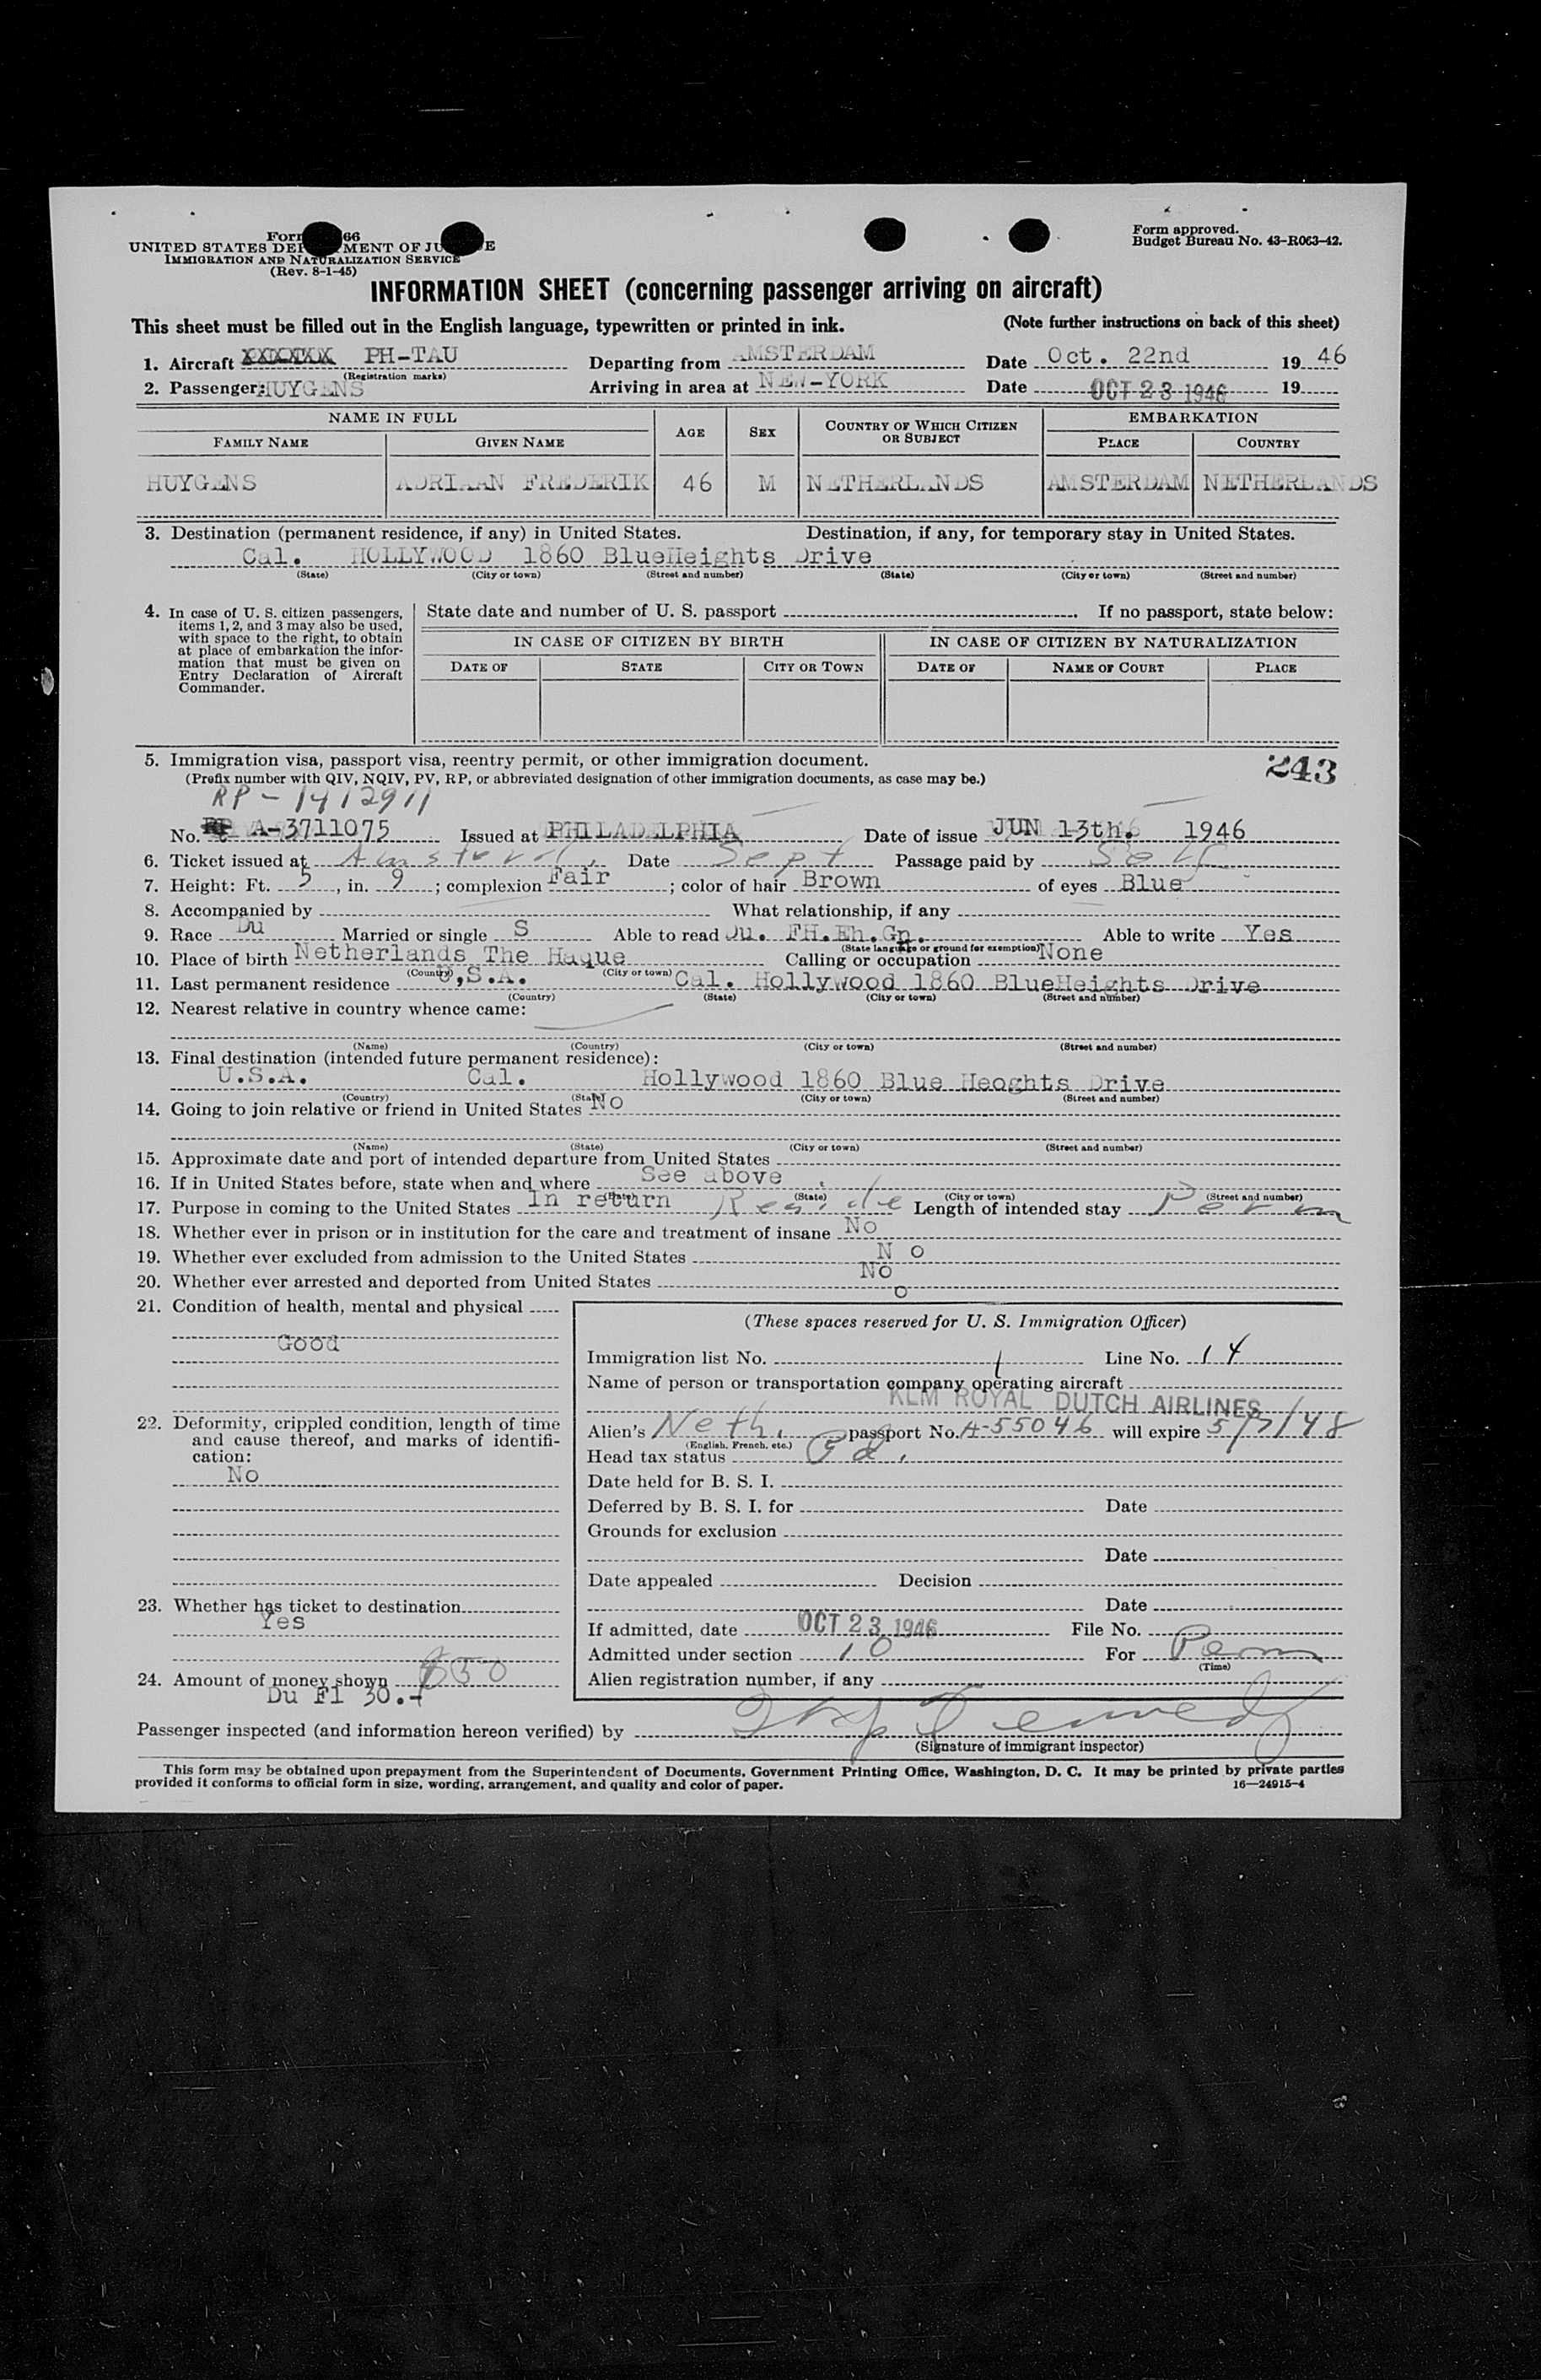 Form 66
UNITED STATES DEPARTMENT OF JUSTICE
IMMIGRATION AND NATURALIZATION SERVICE
(Rev. 8-1-45)
Form approved.
Budget Bureau No. 43-R063-42.
INFORMATION SHEET (concerning passenger arriving on aircraft)
This sheet must be filled out in the English language, typewritten or printed in ink. (Note further instructions on back of this sheet)
1. Aircraft PH-TAU Departing from AMSTERDAM Date Oct. 22nd 19 46
(Registration marks)
2. Passenger: HUYGENS Arriving in area at NEW-YORK Date OCT 23 1946 19
NAME IN FULL AGE SEX COUNTRY OF WHICH CITIZEN OR SUBJECT EMBARKATION
FAMILY NAME GIVEN NAME PLACE COUNTRY
HUYGENS ADRIAAN FREDERIK 46 M NETHERLANDS AMSTERDAM NETHERLANDS
3. Destination (permanent residence, if any) in United States. Destination, if any, for temporary stay in United States.
Cal. HOLLYWOOD 1860 BlueHeights Drive
(State) (City or town) (Street and number) (State) (City or town) (Street and number)
4. In case of U. S. citizen passengers,
items 1, 2, and 3 may also be used,
with space to the right, to obtain
at place of embarkation the infor-
mation that must be given on
Entry Declaration of Aircraft
Commander.
State date and number of U. S. passport If no passport, state below:
IN CASE OF CITIZEN BY BIRTH IN CASE OF CITIZEN BY NATURALIZATION
DATE OF STATE CITY OR TOWN DATE OF NAME OF COURT PLACE
5. Immigration visa, passport visa, reentry permit, or other immigration document.
(Prefix number with QIV, NQIV, PV, RP, or abbreviated designation of other immigration documents, as case may be.)
243
RP - 1412911
No. A-3711075 Issued at PHILADELPHIA Date of issue JUN 13th. 1946
6. Ticket issued at Date Sept Passage paid by Self
7. Height: Ft. 5, in. 9; complexion Fair; color of hair Brown of eyes Blue
8. Accompanied by What relationship, if any
9. Race Du Married or single S Able to read Du. FH. Eh. Gn. Able to write Yes
(State language or ground for exemption)
10. Place of birth Netherlands The Hague Calling or occupation None
(Country) (City or town)
11. Last permanent residence U.S.A. Cal. Hollywood 1860 BlueHeights Drive
(Country) (State) (City or town) (Street and number)
12. Nearest relative in country whence came:
(Name) (Country) (City or town) (Street and number)
13. Final destination (intended future permanent residence):
U.S.A. Cal. Hollywood 1860 Blue Heoghts Drive
(Country) (State) (City or town) (Street and number)
14. Going to join relative or friend in United States NO
(Name) (State) (City or town) (Street and number)
15. Approximate date and port of intended departure from United States
16. If in United States before, state when and where See above
(Date) (State) (City or town) (Street and number)
17. Purpose in coming to the United States In return Reside Length of intended stay Perm
18. Whether ever in prison or in institution for the care and treatment of insane No
19. Whether ever excluded from admission to the United States N o
20. Whether ever arrested and deported from United States No
o
21. Condition of health, mental and physical
Good
22. Deformity, crippled condition, length of time
and cause thereof, and marks of identifi-
cation:
No
23. Whether has ticket to destination
Yes
24. Amount of money shown $50
Du Fl 30.-
(These spaces reserved for U. S. Immigration Officer)
Immigration list No. 1 Line No. 14
Name of person or transportation company operating aircraft
KLM ROYAL DUTCH AIRLINES
Alien's Neth. passport No. A-55046 will expire 5/7/48
(English, French, etc.)
Head tax status Pd.
Date held for B. S. I.
Deferred by B. S. I. for Date
Grounds for exclusion
Date
Date appealed Decision
Date
If admitted, date OCT 23 1946 File No.
Admitted under section 10 For Perm
(Time)
Alien registration number, if any
Passenger inspected (and information hereon verified) by
(Signature of immigrant inspector)
This form may be obtained upon prepayment from the Superintendent of Documents, Government Printing Office, Washington, D. C. It may be printed by private parties
provided it conforms to official form in size, wording, arrangement, and quality and color of paper. 16—24915-4